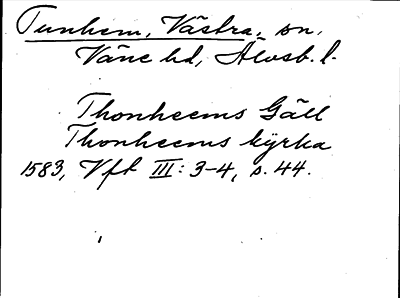 Tunhem, Västra, sn.
Väne hd, Älvsb. l.
Thonheems Gäll
Thonheems kyrka
1583, Vft III: 3-4, s. 44.